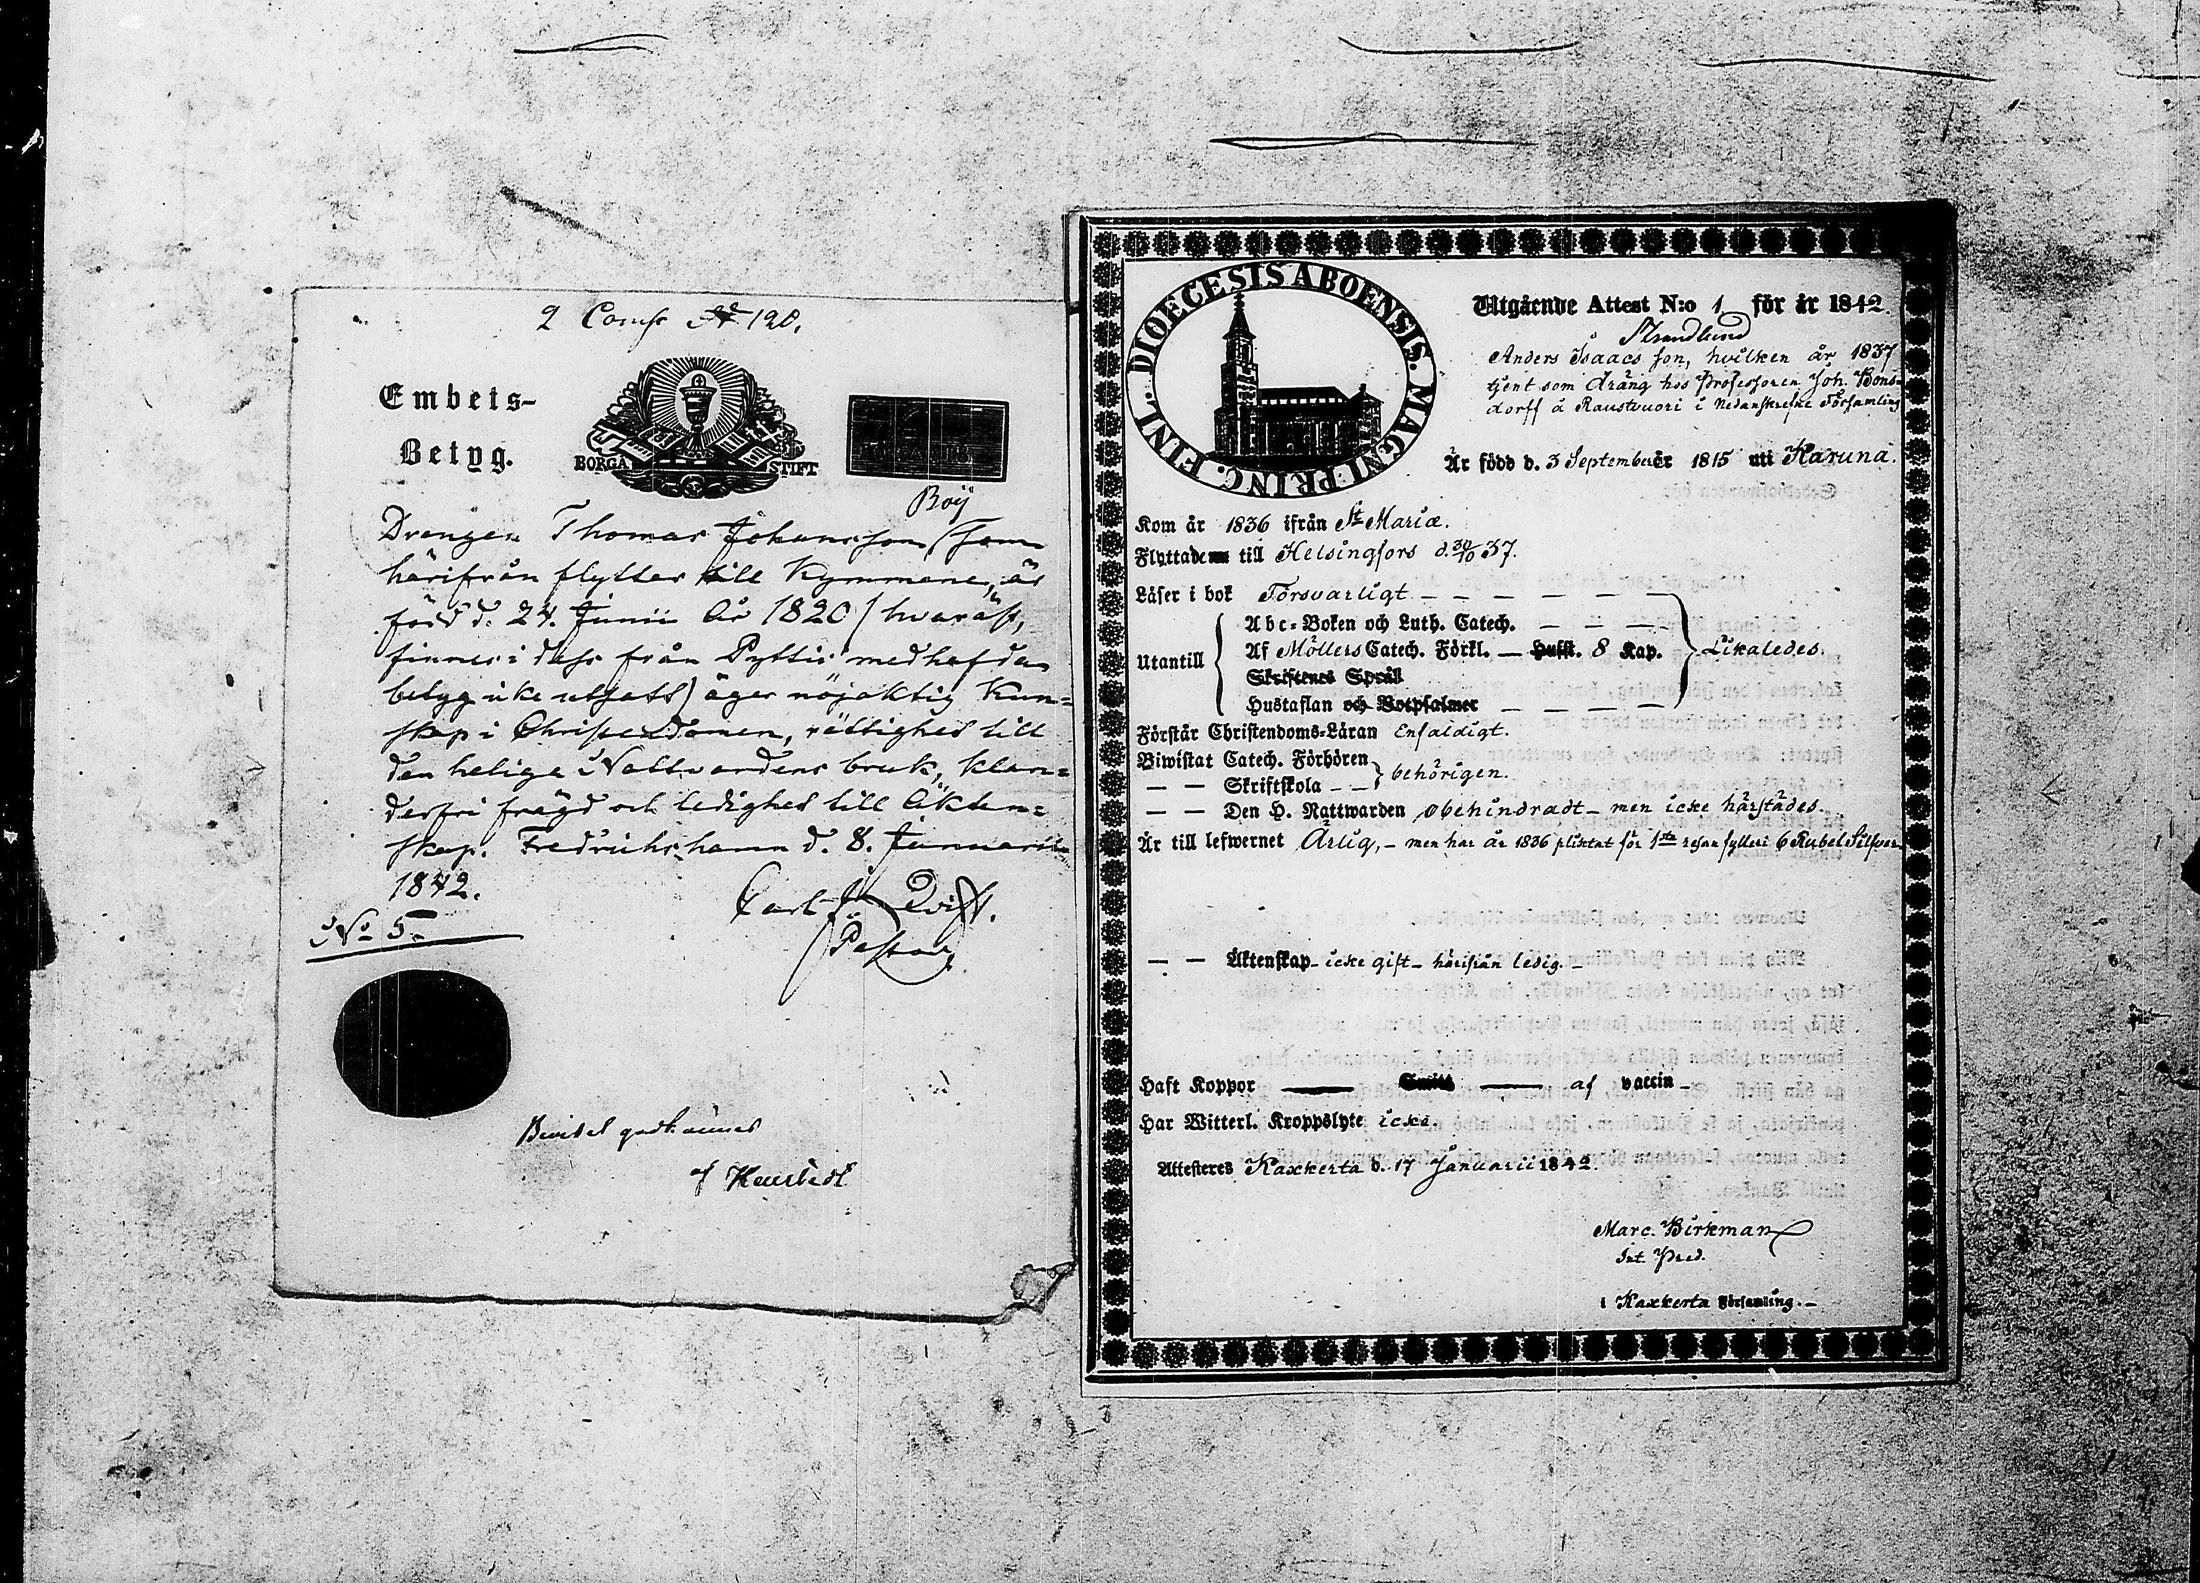 2 Comp N 120.
Embets-
Betyg.
BORGÅ STIFT
Boij
Drengen Thomas Johansson (som
härifrån flyttar till Kymmene, är
född d. 24. Junii år 1820 (hvaräst,
finnes i dess från Pyttis medhafda
betyg icke utsatt) äger nöjaktig Kun=
skap i Christendomen, rättighet till
den heliga Nattvardens bruk, klan=
derfri frägd och ledighet till Äkten=
skap. Fredrikshamn d. 8. Januarii
1842.
Carl Qvist.
Pastor
No 5.
Beviset godkännes
af
DIOECESIS ABOENSIS. MAGNI PRINC. FINL.
Utgående Attest N:o 1 för år 1842.
Strandlund
Anders Isaacs son, hvilken år 1837
tjent som dräng hos Professoren Joh. Bons-
dorff å Raustvuori i Nedanskrefne Församling
Är född d. 3 September år 1815 uti Karuna.
Kom år 1836 ifrån St Mariæ.
Flyttade till Helsingfors d. 30/10 37.
Läser i bok Försvarligt
Abc-Boken och Luth. Catech.
Utantill Af Möllers Catech. Förkl. — Hufst. 8 Kap. Likaledes.
Skriftenes Språk
Hustaflan och Botpsalmer
Förstår Christendoms-Läran Enfaldigt.
Biwistat Catech. Förhören
— — Skriftskola — behörigen.
— — Den H. Nattwarden obehindradt – men icke härstädes.
Är till lefwernet Ärlig, – men har år 1836 pliktat för 1sta resan fylleri 6 Rubel Silfver
— — Äktenskap – icke gift – härifrån ledig. –
Haft Koppor — Smitt — af vaccin –
Har Witterl. Kroppslyte icke.
Attesteres Kaxkerta d. 17 Januarii 1842.
Marc. Birkman
Int Pred.
i Kaxkerta Församling. –